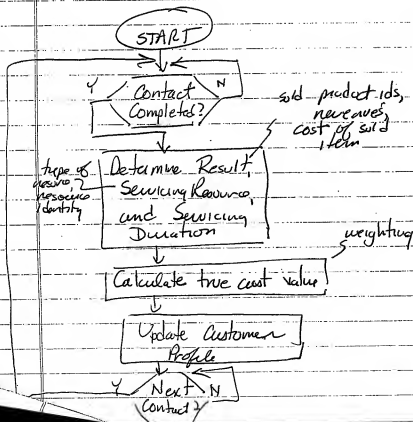 START
Y
N
Contact
Completed?
sold product ids,
revenues,
cost of sold
item
type of
resource
identity
Determine Result,
Servicing Resource,
and Servicing
Duration
weighting
Calculate true cust value
Update Customer
Profile
Y
Next
N
Contact?